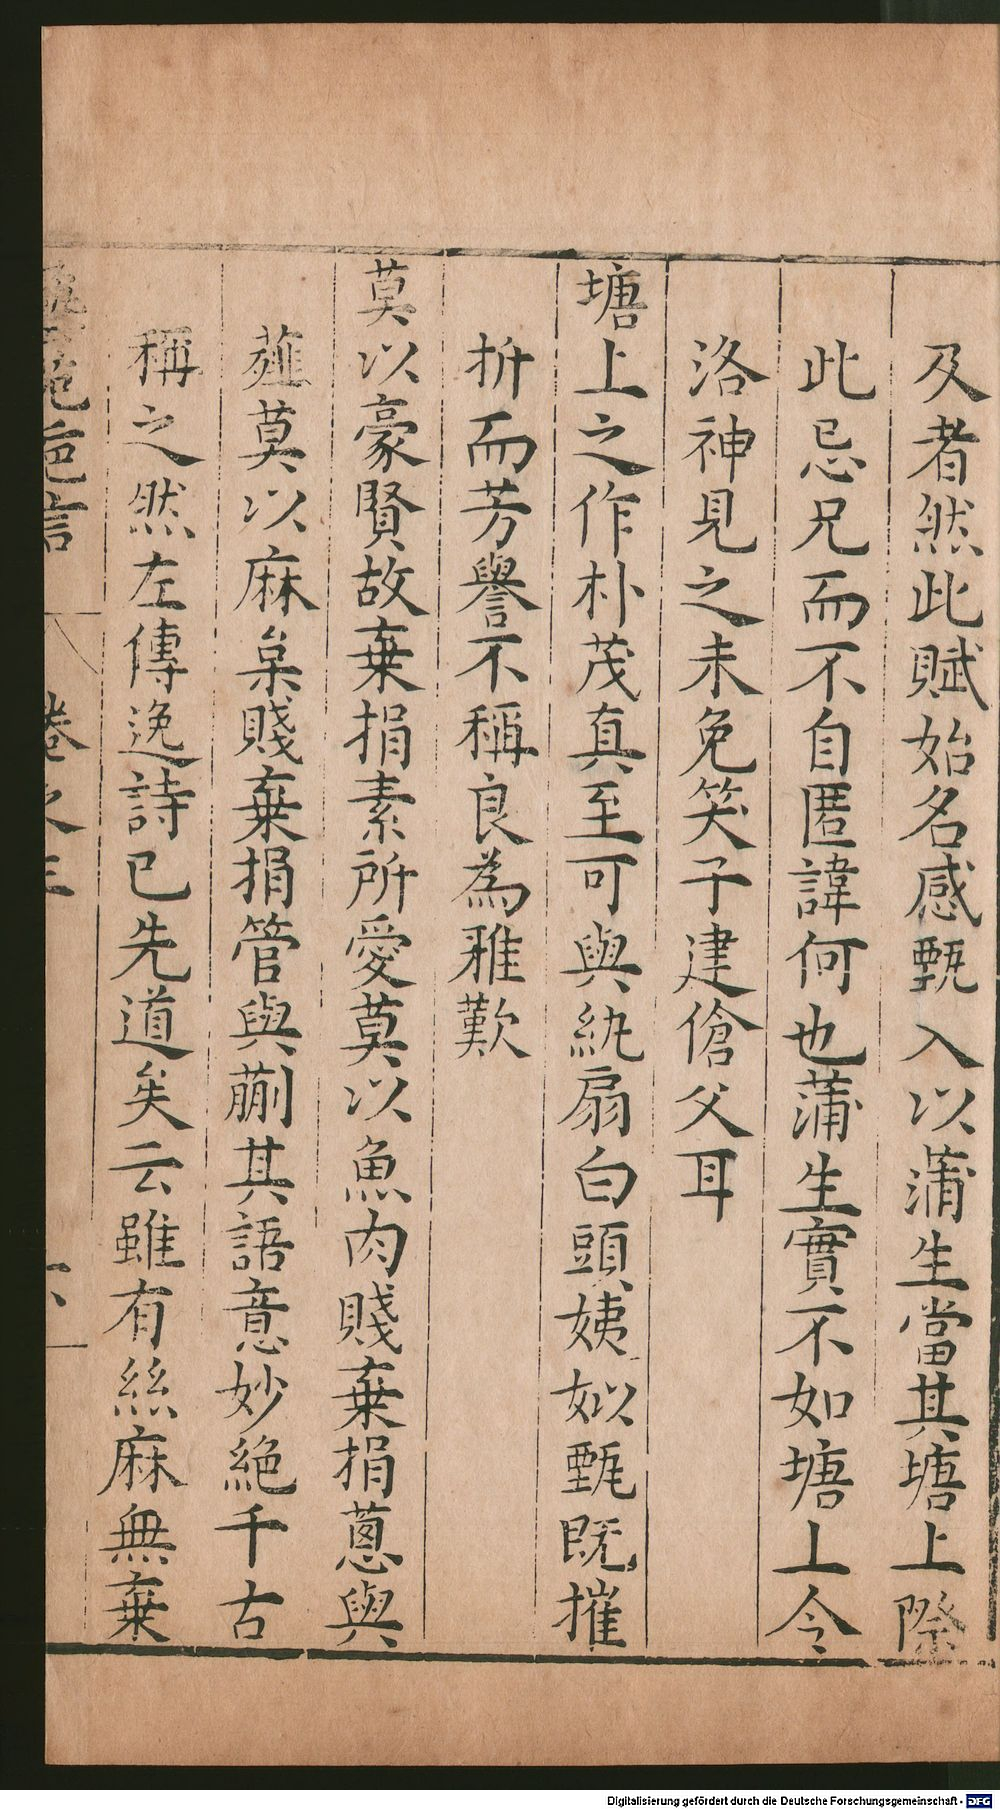 及者然此賦始名感甄入以蒲生當其塘上際
此忌兄而不自匿諱何也蒲生實不如塘上令
洛神見之未免笑子建傖父耳
塘上之作朴茂真至可與紈扇白頭姨姒甄既摧
折而芳譽不稱良為雅歎
莫以豪賢故棄捐素所愛莫以魚肉賤棄捐蔥與
薤莫以麻枲賤棄捐管與蒯其語意妙絕千古
稱之然左傳逸詩已先道矣云雖有絲麻無棄
苑巵言
卷之三
Digitalisierung gefördert durch die Deutsche Forschungsgemeinschaft - DFG